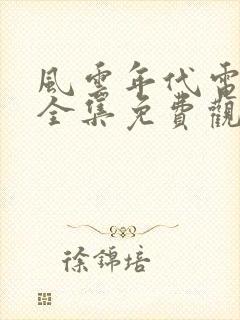 風雲年代電
全集免費觀
徐錦培